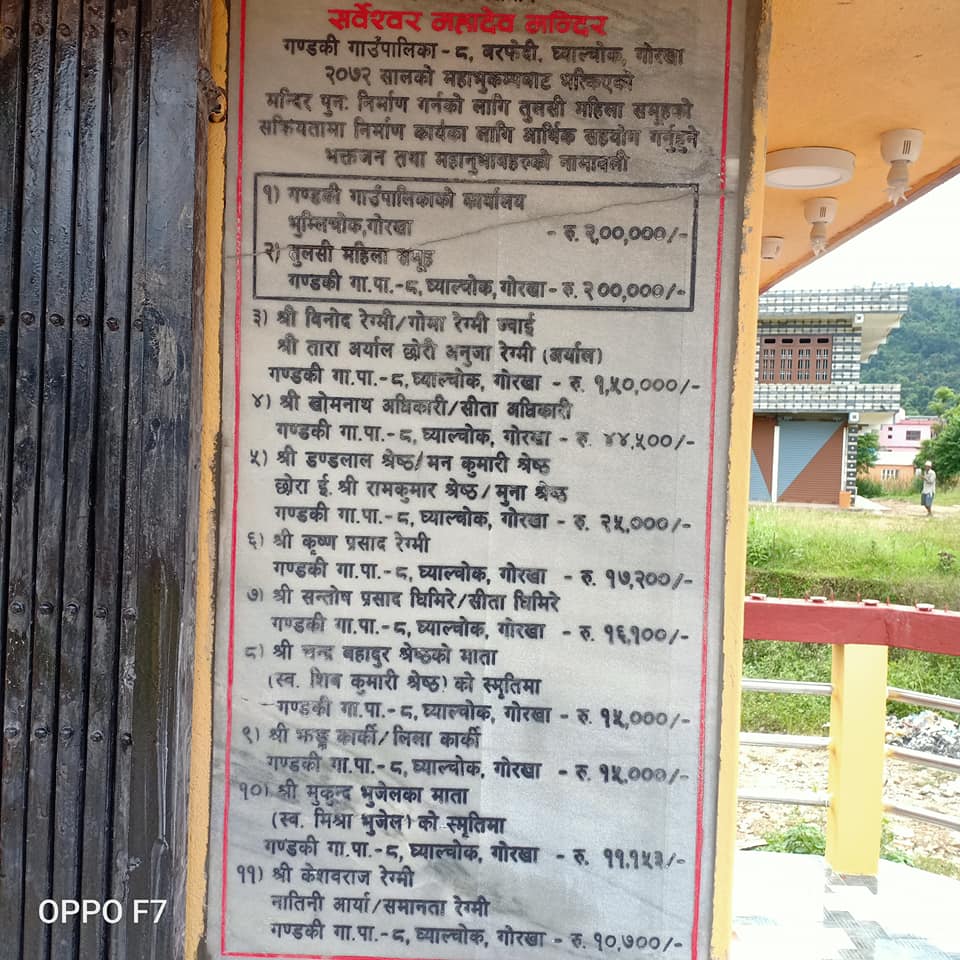 सर्वेश्वर महादेव मन्दिर
गण्डकी गाउँपालिका - ८, बरफेदी, घ्याल्चोक, गोरखा
२०७२ सालको महाभुकम्पबाट भत्किएको
मन्दिर पुन: निर्माण गर्नको लागि तुलसी महिला समूहको
सक्रियतामा निर्माण कार्यका लागि आर्थिक सहयोग गर्नुहुने
भक्तजन तथा महानुभाबहरुको नामावली
१) गण्डकी गाउँपालिकाको कार्यालय
भुम्लिचोक,गोरखा - रु. २,००,०००/-
२) तुलसी महिला समूह
गण्डकी गा.पा.-८, घ्याल्चोक, गोरखा- रु. २००,०००/-
३) श्री विनोद रेग्मी/गोमा रेग्मी ज्वाई
श्री तारा अर्याल छोरी अनुजा रेग्मी (अर्याल)
गण्डकी गा.पा.-८, घ्याल्चोक, गोरखा - रु. १,५०,०००/-
४) श्री खोमनाथ अधिकारी/सीता अधिकारी
गण्डकी गा.पा.-८, घ्याल्चोक, गोरखा - रु. ४४,५००/-
५) श्री डण्डलाल श्रेष्ठ/मन कुमारी श्रेष्ठ
छोरा ई. श्री रामकुमार श्रेष्ठ / मुना श्रेष्ठ
गण्डकी गा.पा.-८, घ्याल्चोक, गोरखा - रु. २५,०००/-
६) श्री कृष्ण प्रसाद रेग्मी
गण्डकी गा.पा.-८, घ्याल्चोक, गोरखा - रु. १७,२००/-
७) श्री सन्तोष प्रसाद घिमिरे/सीता घिमिरे
गण्डकी गा.पा.-८, घ्याल्चोक, गोरखा - रु. १६,१००/-
८) श्री चन्द्र बहादुर श्रेष्ठको माता
(स्व. शिब कुमारी श्रेष्ठ) को स्मृतिमा
गण्डकी गा.पा.-८, घ्याल्चोक, गोरखा - रु. १५,०००/-
९) श्री कार्की/लिला कार्की
गण्डकी गा.पा.-८, घ्याल्चोक, गोरखा - रु. १५,०००/-
१०) श्री मुकुन्द भुजेलका माता
(स्व. मिश्रा भुजेल) को स्मृतिमा
गण्डकी गा.पा.-८, घ्याल्चोक, गोरखा - रु. ११.१५३/-
११) श्री केशवराज रेग्मी
नातिनी आर्या/समानता रेग्मी
गण्डकी गा.पा.-८, घ्याल्चोक, गोरखा - रु. १०,७००/-
OPPO F7